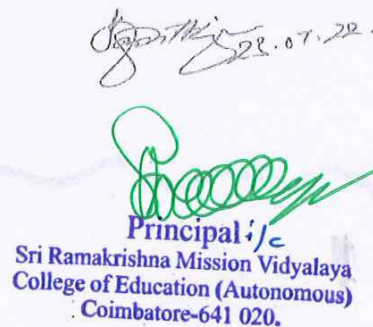 23.07.22.
Principal i/c
Sri Ramakrishna Mission Vidyalaya
College of Education (Autonomous)
Coimbatore-641 020.